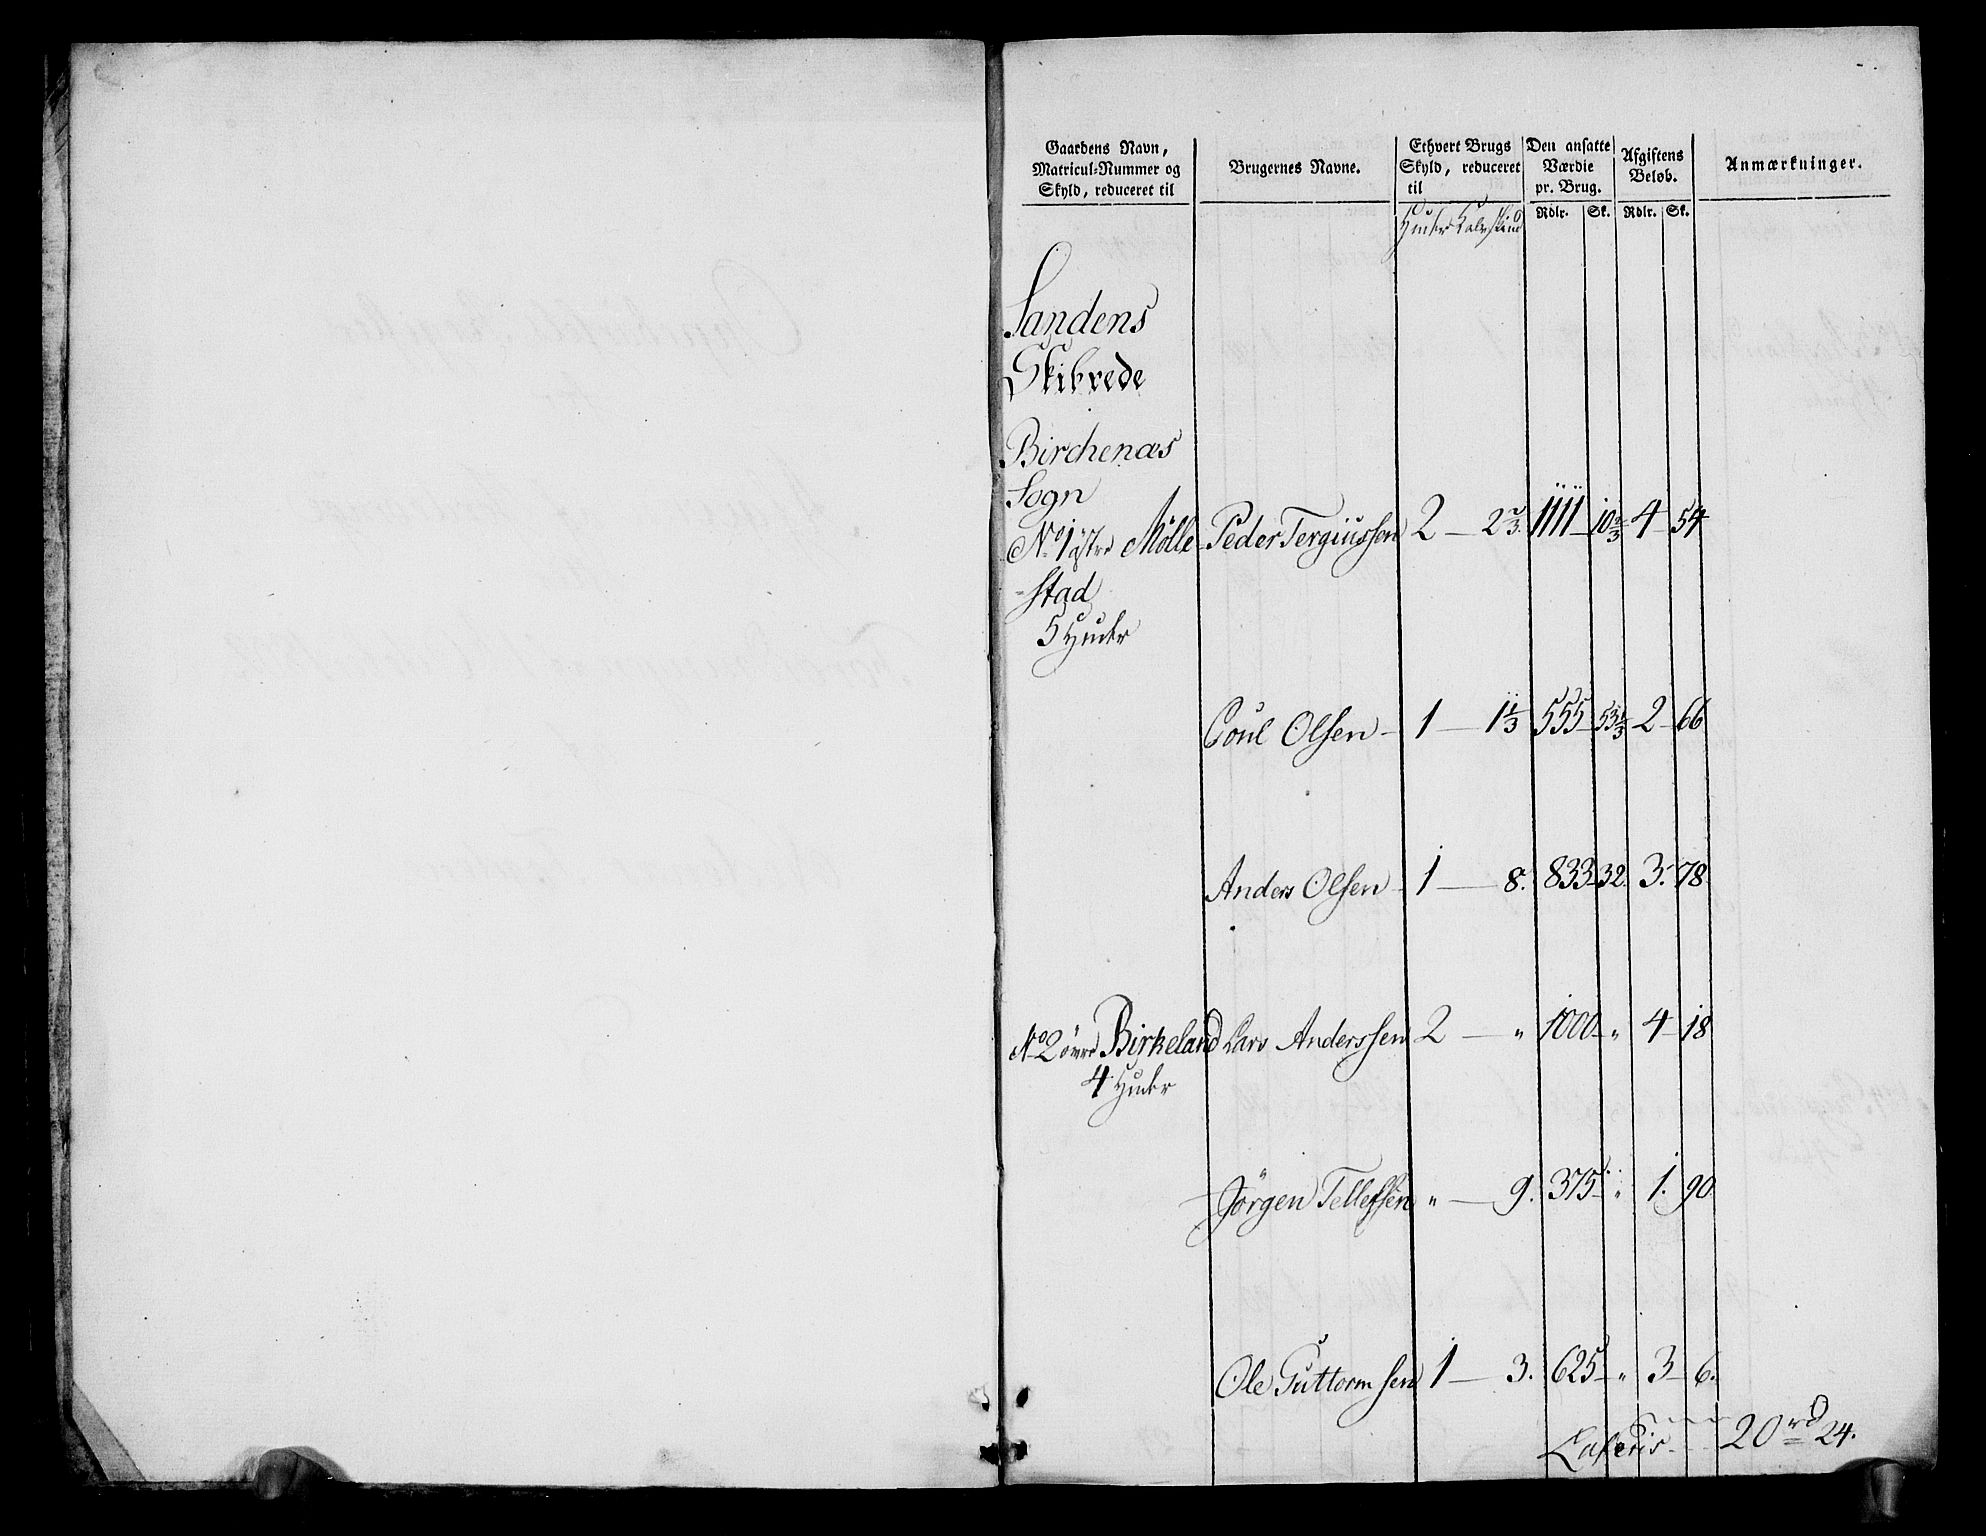 Gaardens Navn,
Matricul-Nummer og
Skyld, reduceret til
Brugernes Navne.
Ethvert Brugs
Skyld, reduceret
til
Den ansatte
Værdie
pr. Brug.
Afgiftens
Beløb.
Anmærkninger.
Huder Kalvskind
Rdlr. Sk. Rdlr. Sk.
Sandens
Skibrede
Birchenæs
Sogn
No 1 østre Mølle Peder Tergiussen 2 — 2 2/3. 1111 — 10 2/3 4 — 54
-stad
5 Huder
Poul Olsen — 1 — 1 1/3 555 — 53 1/3 2 — 66
Anders Olsen — 1 — 8. 833 — 32. 3. — 78
No 2 övre Birkeland Lars Anderssen 2 — " 1000 — " 4 — 18
4 Huder
Jörgen Tellefsen " — 9. 375 — " 1. 90
Ole Guttormsen 1 — 3. 625 — " 3 — 6.
Lateris - - - 20 rd 24.